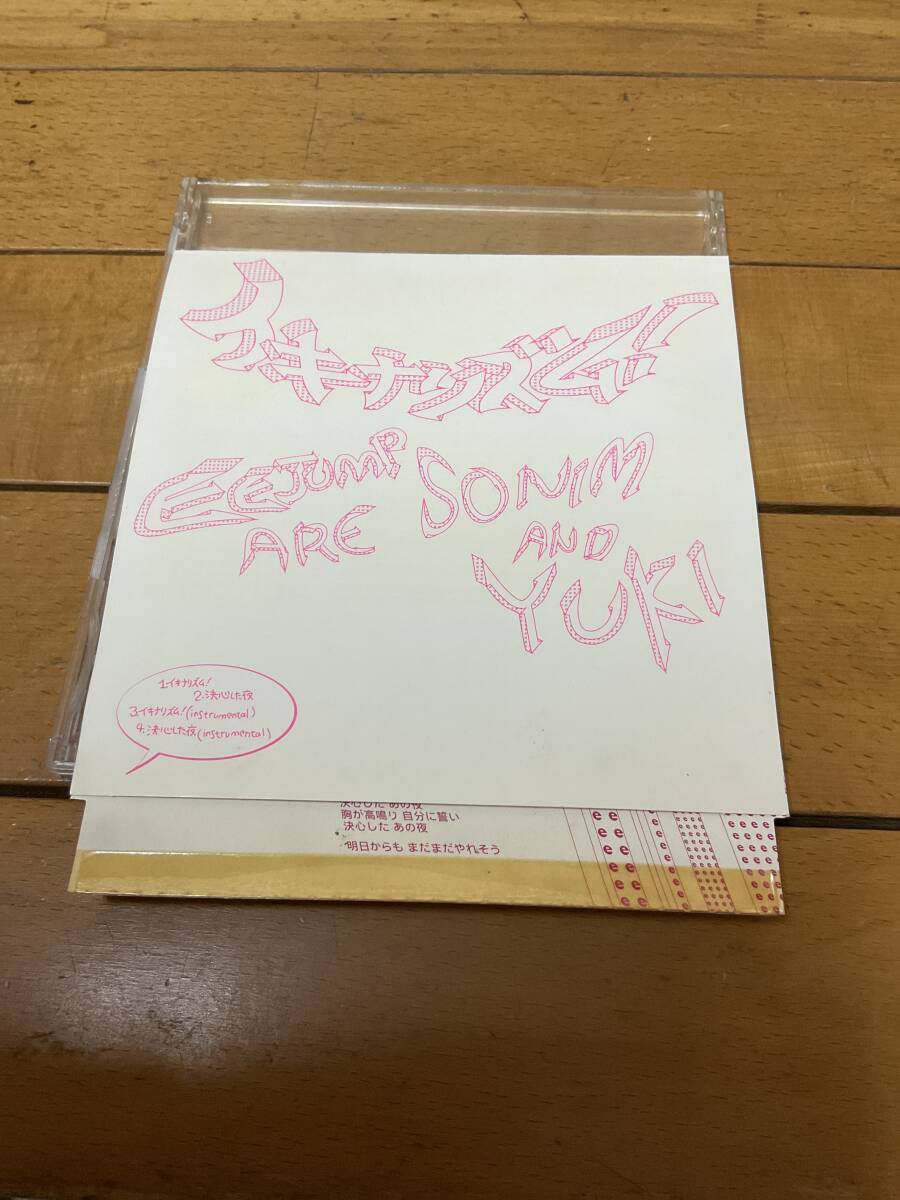 イキナリズム!
EE JUMP
ARE
SONIM
AND
YUKI
1.イキナリズム!
2.決心した夜
3.イキナリズム!(instrumental)
4.決心した夜(instrumental)
決心した あの夜
胸が高鳴り 自分に誓い
決心した あの夜
明日からも まだまだやれそう